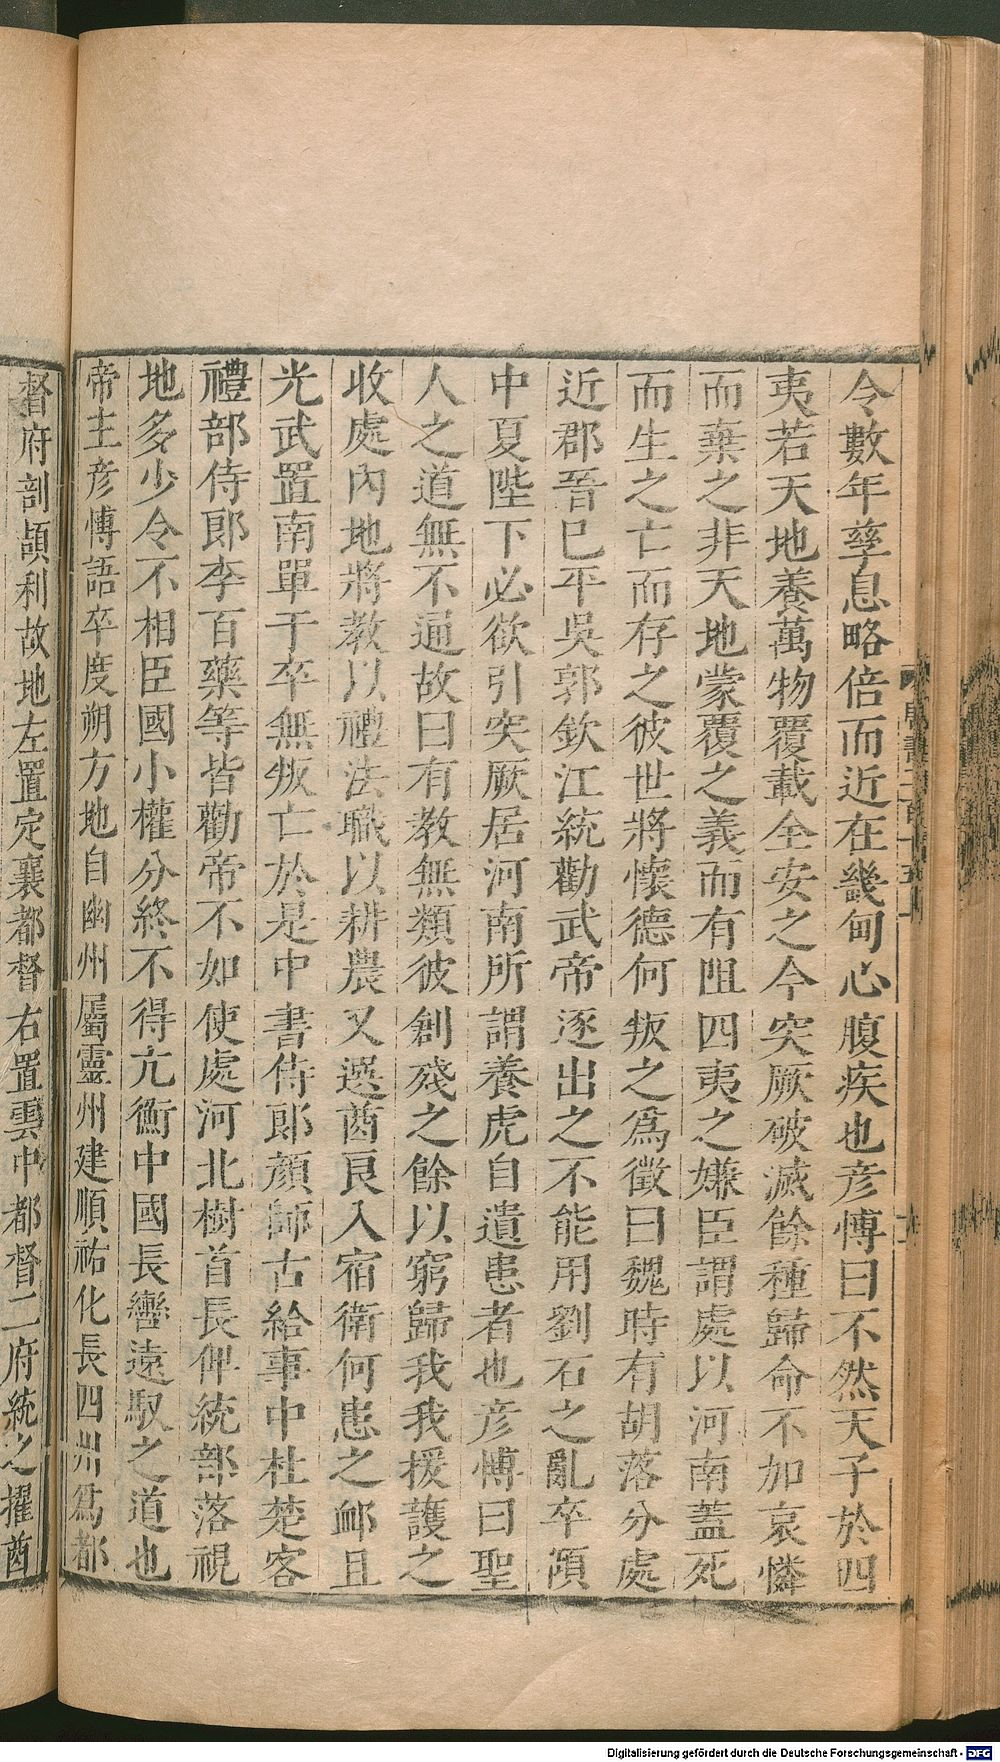 令數年孳息略倍而近在畿甸心腹疾也彥博曰不然天子於四
夷若天地養萬物覆載全安之今突厥破滅餘種歸命不加哀憐
而棄之非天地蒙覆之義而有阻四夷之嫌臣謂處以河南蓋死
而生之亡而存之彼世將懷德何叛之爲徵曰魏時有胡落分處
近郡晉已平吳郭欽江統勸武帝逐出之不能用劉石之亂卒隕
中夏陛下必欲引突厥居河南所謂養虎自遺患者也彥博曰聖
人之道無不通故曰有教無類彼創殘之餘以窮歸我我援護之
收處內地將教以禮法職以耕農又選酋良入宿衛何患之卹且
光武置南單于卒無叛亡於是中書侍郎顏師古給事中杜楚客
禮部侍郎李百藥等皆勸帝不如使處河北樹首長俾統部落視
地多少令不相臣國小權分終不得亢衡中國長轡遠馭之道也
帝主彥博語卒度朔方地自幽州屬靈州建順祐化長四州爲都
督府剖頡利故地左置定襄都督右置雲中都督二府統之擢酋
Digitalisierung gefördert durch die Deutsche Forschungsgemeinschaft - DFG